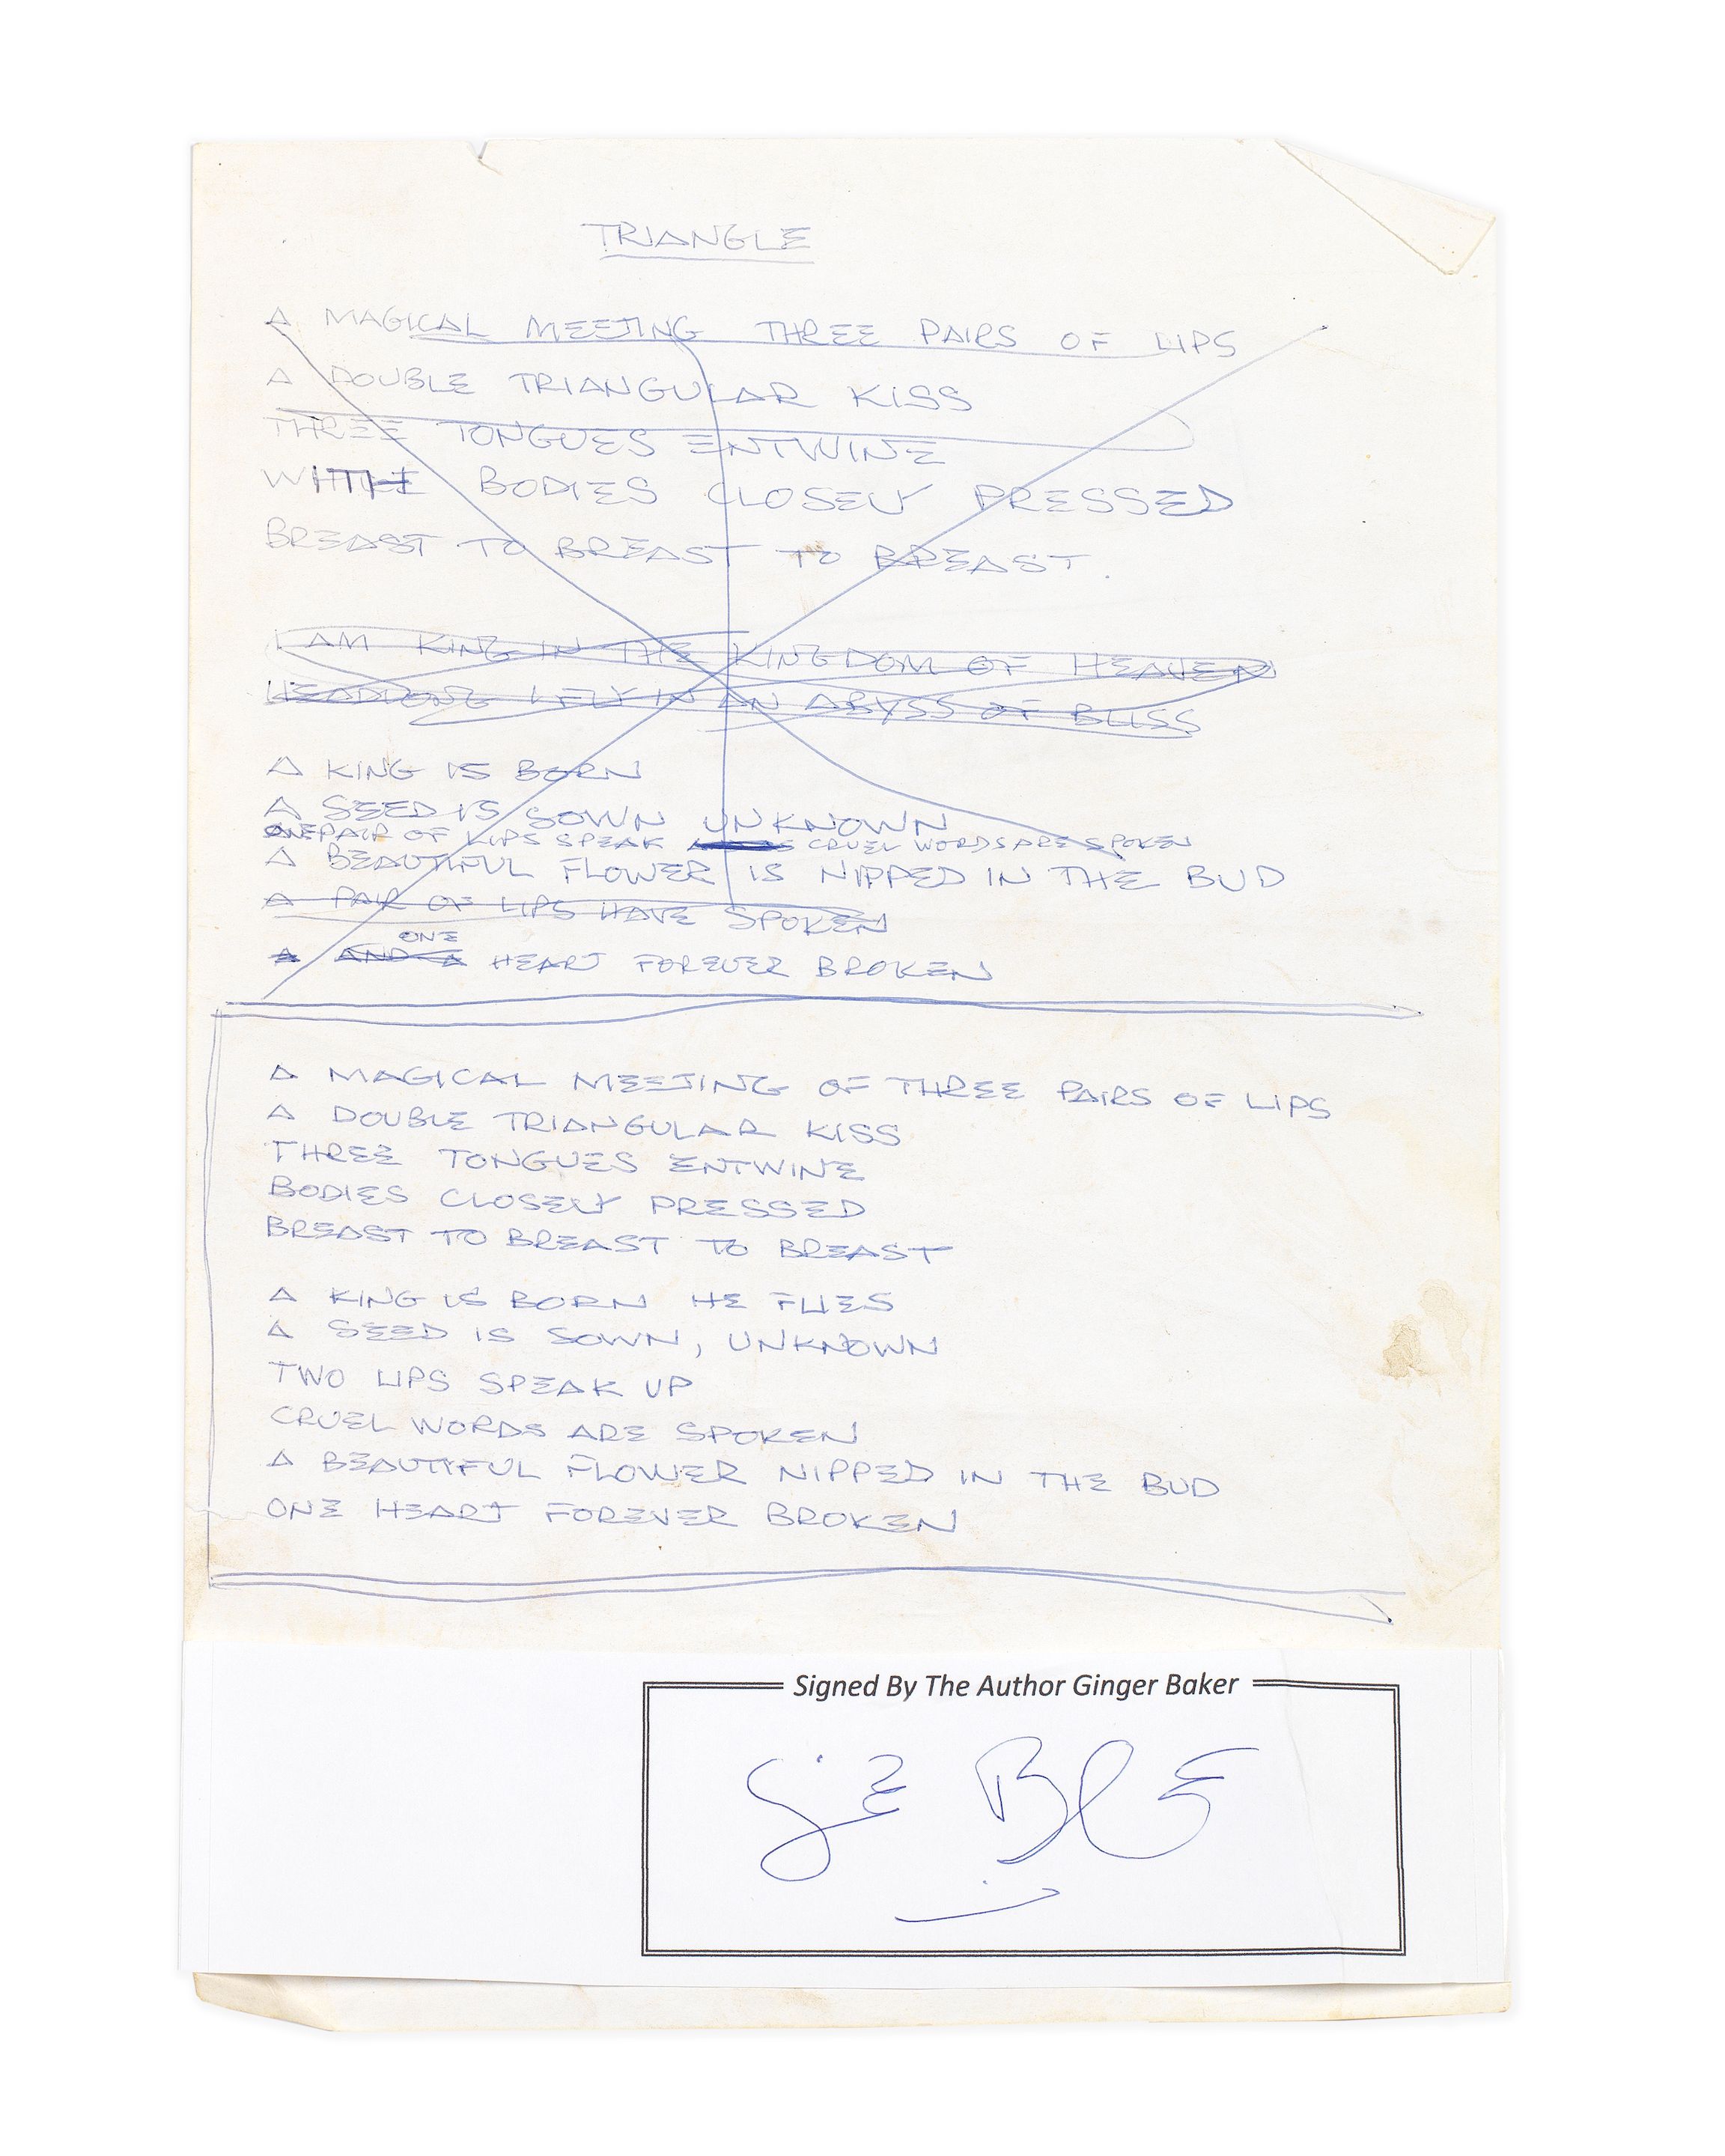 TRIANGLE
A MAGICAL MEETING THREE PAIRS OF LIPS
A DOUBLE TRIANGULAR KISS
THREE TONGUES ENTWINE
WITH BODIES CLOSELY PRESSED
BREAST TO BREAST TO BREAST.
I AM KING IN THE KINGDOM OF HEAVEN
HEADLONG I FLY IN AN ABYSS OF BLISS
A KING IS BORN
A SEED IS SOWN UNKNOWN
ONE PAIR OF LIPS SPEAK CRUEL WORDS ARE SPOKEN
A BEAUTIFUL FLOWER IS NIPPED IN THE BUD
A PAIR OF LIPS HAVE SPOKEN
ONE
A AND A HEART FOREVER BROKEN
A MAGICAL MEETING OF THREE PAIRS OF LIPS
A DOUBLE TRIANGULAR KISS
THREE TONGUES ENTWINE
BODIES CLOSELY PRESSED
BREAST TO BREAST TO BREAST
A KING IS BORN HE FLIES
A SEED IS SOWN, UNKNOWN
TWO LIPS SPEAK UP
CRUEL WORDS ARE SPOKEN
A BEAUTIFUL FLOWER NIPPED IN THE BUD
ONE HEART FOREVER BROKEN
Signed By The Author Ginger Baker